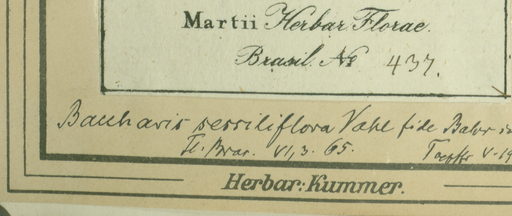 Martii Herbar. Florae
Brasil. No 437.
Baccharis sessiliflora Vahl fide Baker in
Fl. Bras. VI, 3. 65.
Herbar: Kummer.